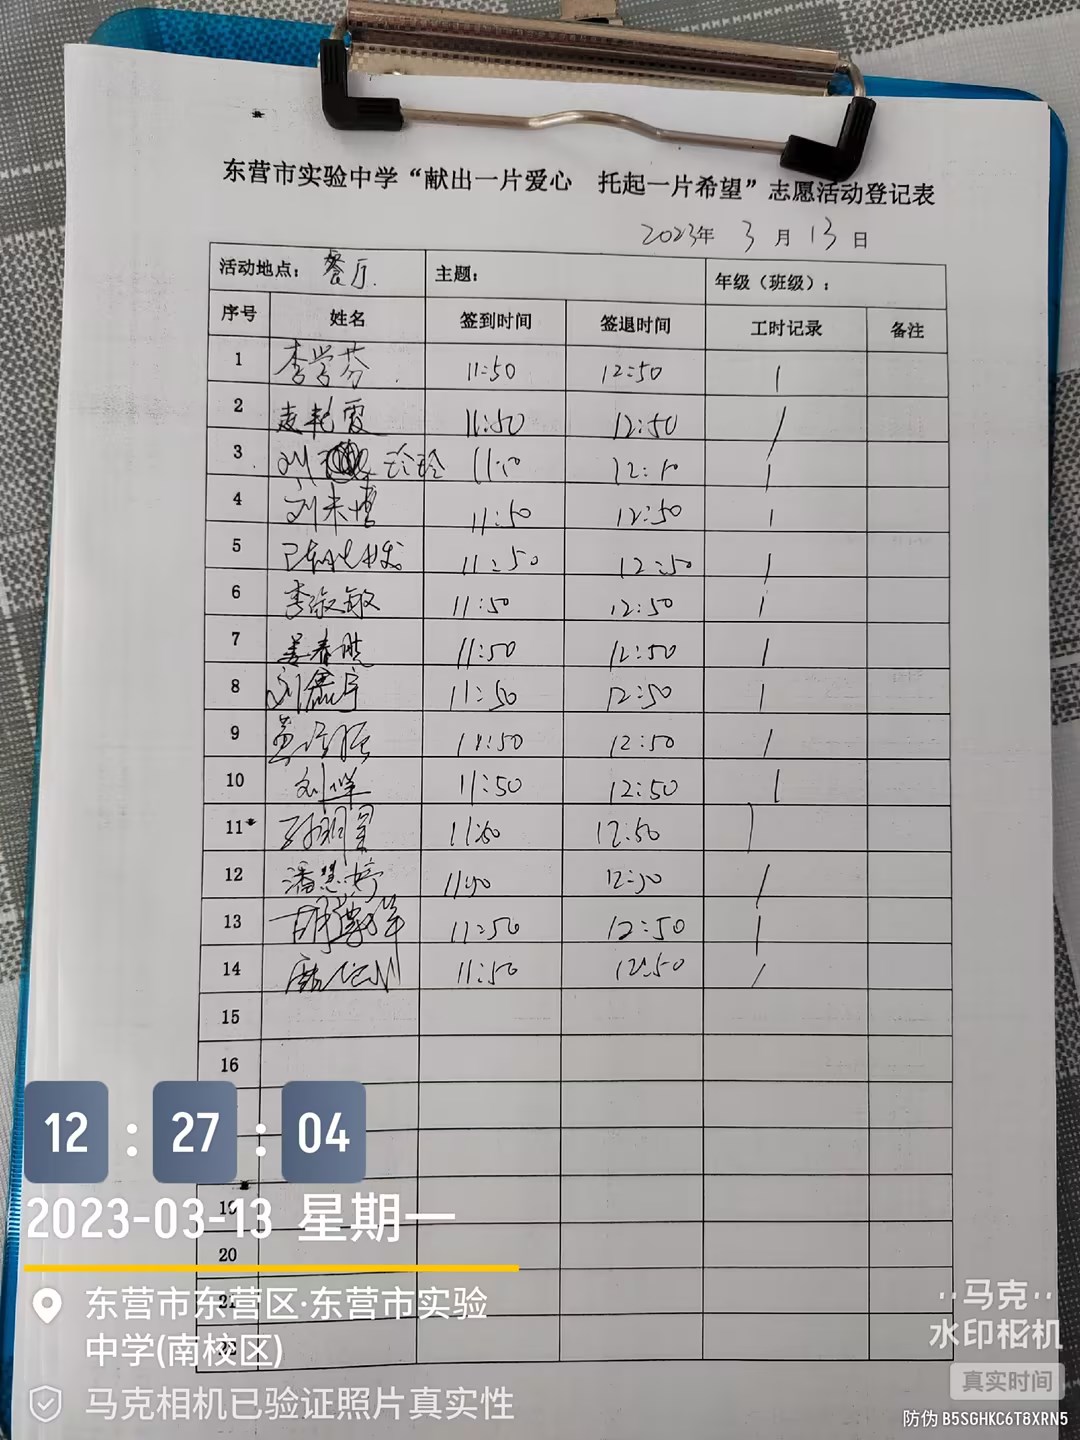 东营市实验中学“献出一片爱心 托起一片希望”志愿活动登记表
2023年 3 月 13 日
活动地点：餐厅. 主题： 年级（班级）：
序号 姓名 签到时间 签退时间 工时记录 备注
1 李学芬 11:50 12:50 1
2 袁艳霞 11:50 12:50 1
3 刘 玲玲 11:50 12:50 1
4 刘来博 11:50 12:50 1
5 11:50 12:50 1
6 李淑敏 11:50 12:50 1
7 姜春晓 11:50 12:50 1
8 刘鑫宇 11:50 12:50 1
9 11:50 12:50 1
10 11:50 12:50 1
11 孙明星 11:50 12:50 1
12 潘慧婷 11:50 12:50 1
13 11:50 12:50 1
14 11:50 12:50 1
15
16
19
20
21
12:27:04
2023-03-13 星期一
东营市东营区·东营市实验
中学(南校区)
马克相机已验证照片真实性
马克
水印相机
真实时间
防伪 B5SGHKC6T8XRN5